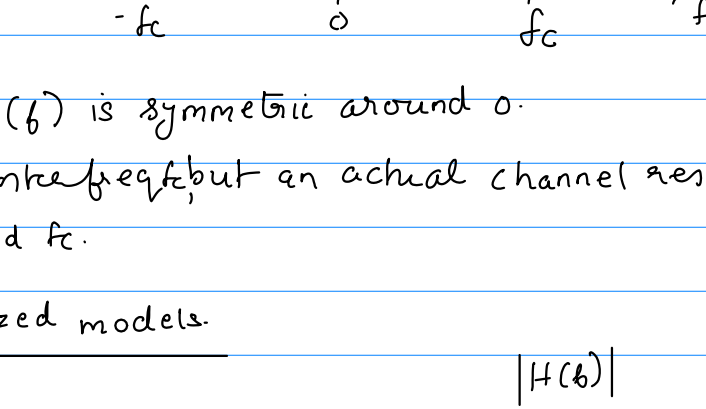 - fc 0 fc f
(f) is symmetric around 0.
freq fc, but an actual channel res
d fc.
zed models.
|H(f)|